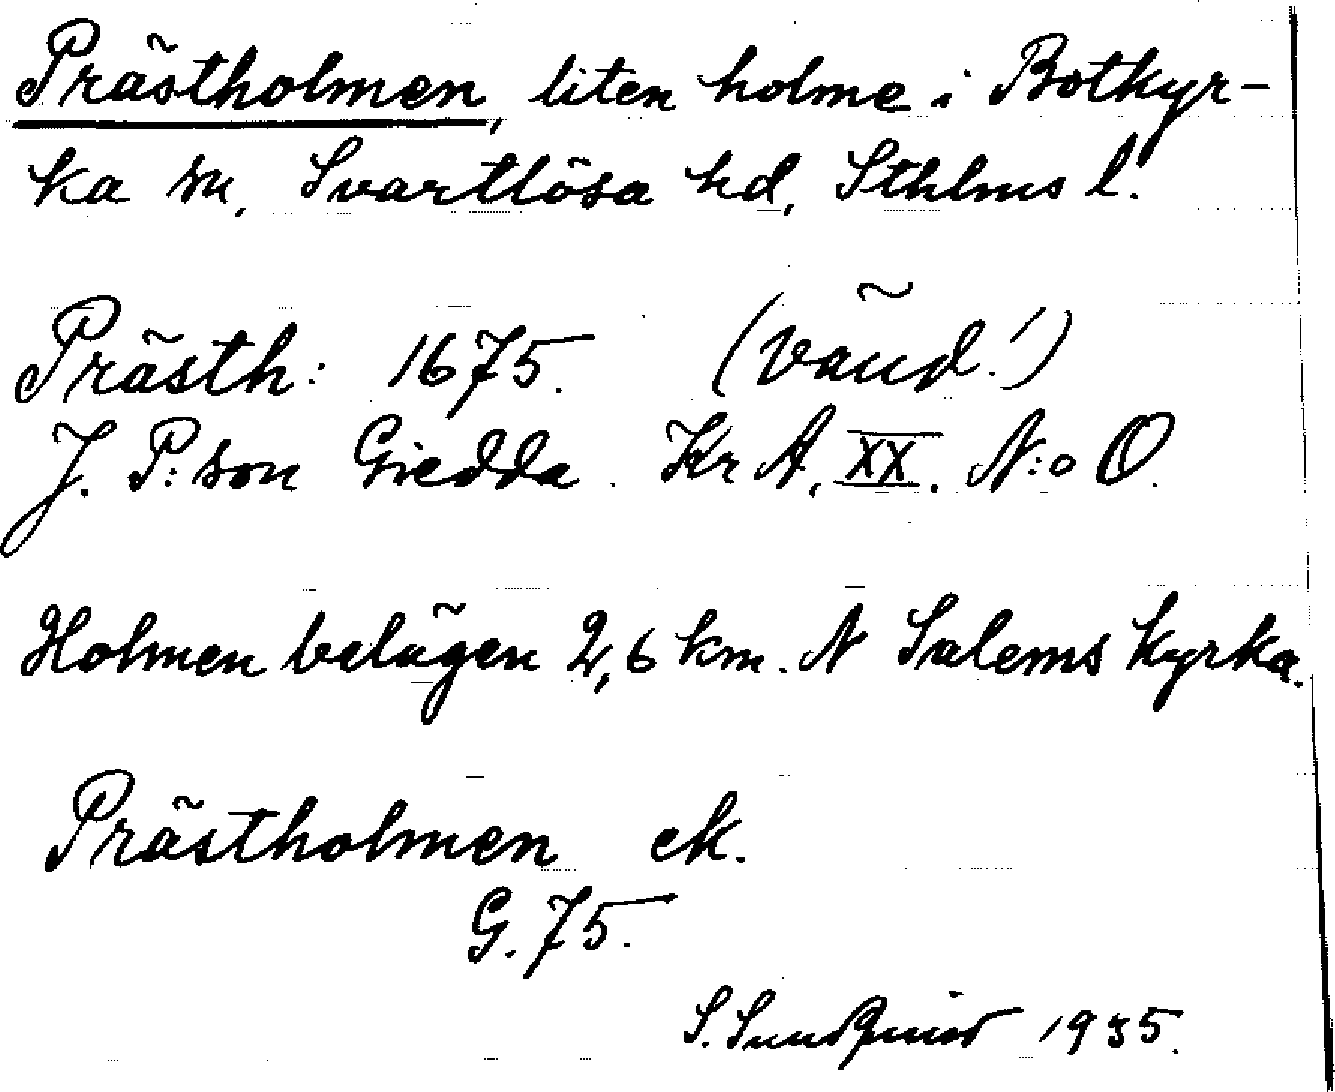 Prästholmen, liten holme i Botkyr-
ka sn, Svartlösa hd, Sthlms l.
Prästh: 1675. (vänd!)
J. P:son Giedda. Kr A, XX. N:o O.
Holmen belägen 2,6 km. N Salems kyrka.
Prästholmen ek.
G. 75.
S. Sundqvist 1935.